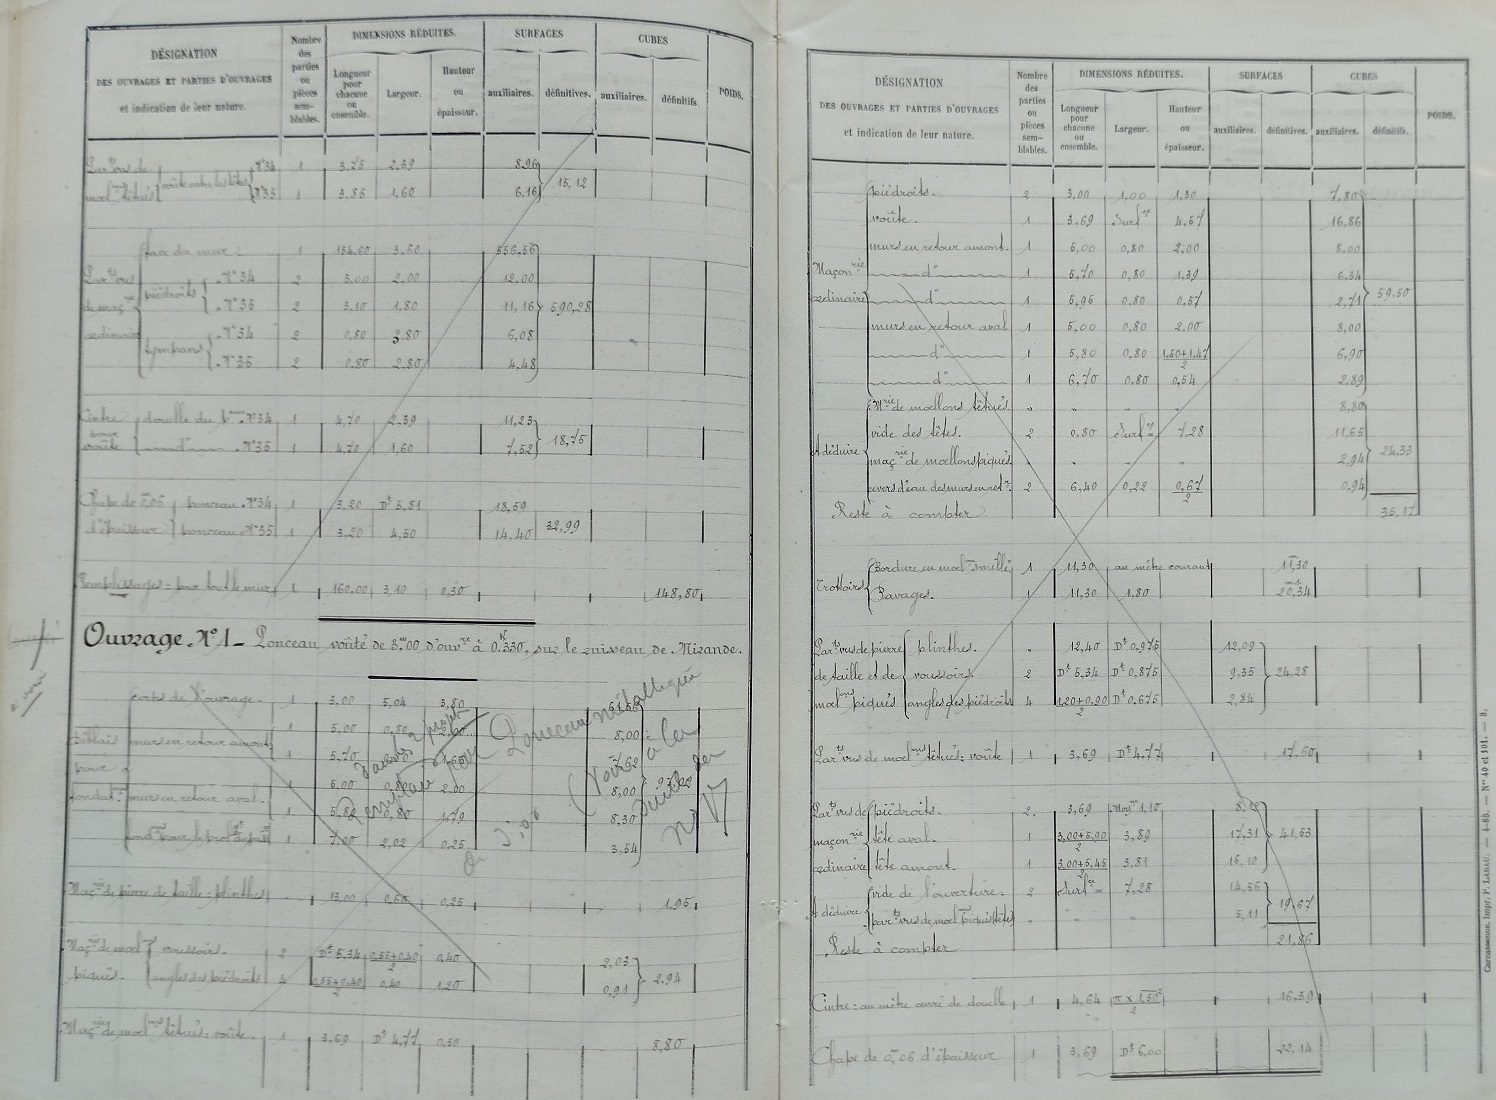 DÉSIGNATION
DES OUVRAGES ET PARTIES D'OUVRAGES
et indication de leur nature.
Nombre des parties ou pièces semblables.
DIMENSIONS RÉDUITES.
Longueur pour chacune ou ensemble.
Largeur.
Hauteur ou épaisseur.
SURFACES
auxiliaires. définitives.
CUBES
auxiliaires. définitifs.
POIDS.
Par.ts vus de moel.ons têtués voûte entre les têtes N°34 1 3,75 2,39 8,96
N°35 1 3,85 1,60 6,16 15,12
face du mur 1 154,60 3,60 556,56
Par.ts vus de maç.rie ordinaire piédroits N°34 2 3,00 2,00 12,00
N°35 2 3,10 1,80 11,16 590,28
tympans N°34 2 0,80 3,80 6,08
N°35 2 0,80 2,80 4,48
Cintre pour voûte douelle du N°34 1 4,70 2,39 11,23
d° N°35 1 4,70 1,60 7,52 18,75
Chape de 0,05 d'épaisseur ponceau N°34 1 3,20 Dt 5,81 18,59
ponceau N°35 1 3,20 4,50 14,40 32,99
Remplissages : pour tout le mur 1 160,00 3,10 0,30 148,80
Ouvrage N°1 _ Ponceau voûté de 3m00 d'ouv.re à 0K330, sur le ruisseau de Mirande.
à voir
corps de l'ouvrage. 1 3,00 5,04 3,80
Déblais pour fondat.ns murs en retour amont 1 5,00 0,80 2,00 8,00
1 5,70 7,62
murs en retour aval. 1 5,00 0,80 2,00 8,00
1 5,80 0,80 1,79 8,30
1 7,00 2,02 0,25 3,54
Remplacé par Ponceau métallique
(Voir à la suite du n° 17
Maç.rie de pierre de taille : plinthes 13,00 0,60 0,25 1,95
Maç.rie de moel.ons piqués. voussoirs. 2 Dt 5,34 0,35+0,40/2 0,40 2,03
angles des piédroits 4 0,55+0,40/2 0,40 1,20 0,91 2,94
Maç.rie de moel.ons têtués : voûte. 1 3,69 Dt 4,77 0,50 8,80
DÉSIGNATION
DES OUVRAGES ET PARTIES D'OUVRAGES
et indication de leur nature.
Nombre des parties ou pièces semblables.
DIMENSIONS RÉDUITES.
Longueur pour chacune ou ensemble.
Largeur.
Hauteur ou épaisseur.
SURFACES
auxiliaires. définitives.
CUBES
auxiliaires. définitifs.
POIDS.
Maçon.rie ordinaire piédroits. 2 3,00 1,00 1,30 7,80
voûte. 1 3,69 Surf.ce 4,57 16,86
murs en retour amont. 1 5,00 0,80 2,00 8,00
d° 1 5,70 0,80 1,39 6,34
d° 1 5,95 0,80 0,57 2,71 59,50
murs en retour aval 1 5,00 0,80 2,00 8,00
d° 1 5,80 0,80 1,50+1,47/2 6,90
d° 1 6,70 0,80 0,54 2,89
A déduire M.rie de moellons têtués. " " " 8,80
vide des têtes. 2 0,80 Surf.ce 7,28 11,65
maç.rie de moellons piqués. " " " 2,94 24,33
devers d'eau des murs en ret.r 2 6,40 0,22 0,67/2 0,94
Reste à compter 35,17
Trottoirs Bordure en moel.ons smillés 1 11,30 au mètre courant 11,30
Pavages. 1 11,30 1,80 20,34
Par.ts vus de pierre de taille et de moel.ons piqués plinthes. " 12,40 Dt 0,975 12,09
voussoirs. 2 Dt 5,34 Dt 0,875 9,35 24,28
angles des piédroits 4 1,20+0,90 Dt 0,675 2,84
Par.ts vus de moel.ons têtués : voûte 1 3,69 Dt 4,77 17,60
Par.ts vus de maçon.rie ordinaire piédroits. 2 3,69 Moy.ne 1,10
tête aval. 1 3,00+5,90/2 3,89 17,31 41,53
tête amont. 1 3,00+5,45/2 3,81 16,10
A déduire vide de l'ouverture. 2 Surf.ce = 7,28 14,56
par.ts vus de moel.ons piqués (têtes) " " " 5,11 19,67
Reste à compter 21,86
Cintre : au mètre carré de douelle 1 4,64 π x 1,50²/2 16,39
Chape de 0,05 d'épaisseur 1 3,69 Dt 6,00 22,14
Carcassonne. Impr. P. LABAU. — 4-85. — Nos 40 et 101. — 9.